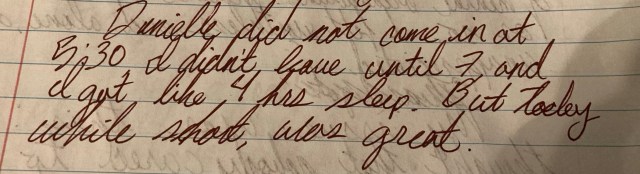 Danielle did not come in at
5:30 I didn't leave until 7 and
I got like 4 hrs sleep. But today
while short, was great.